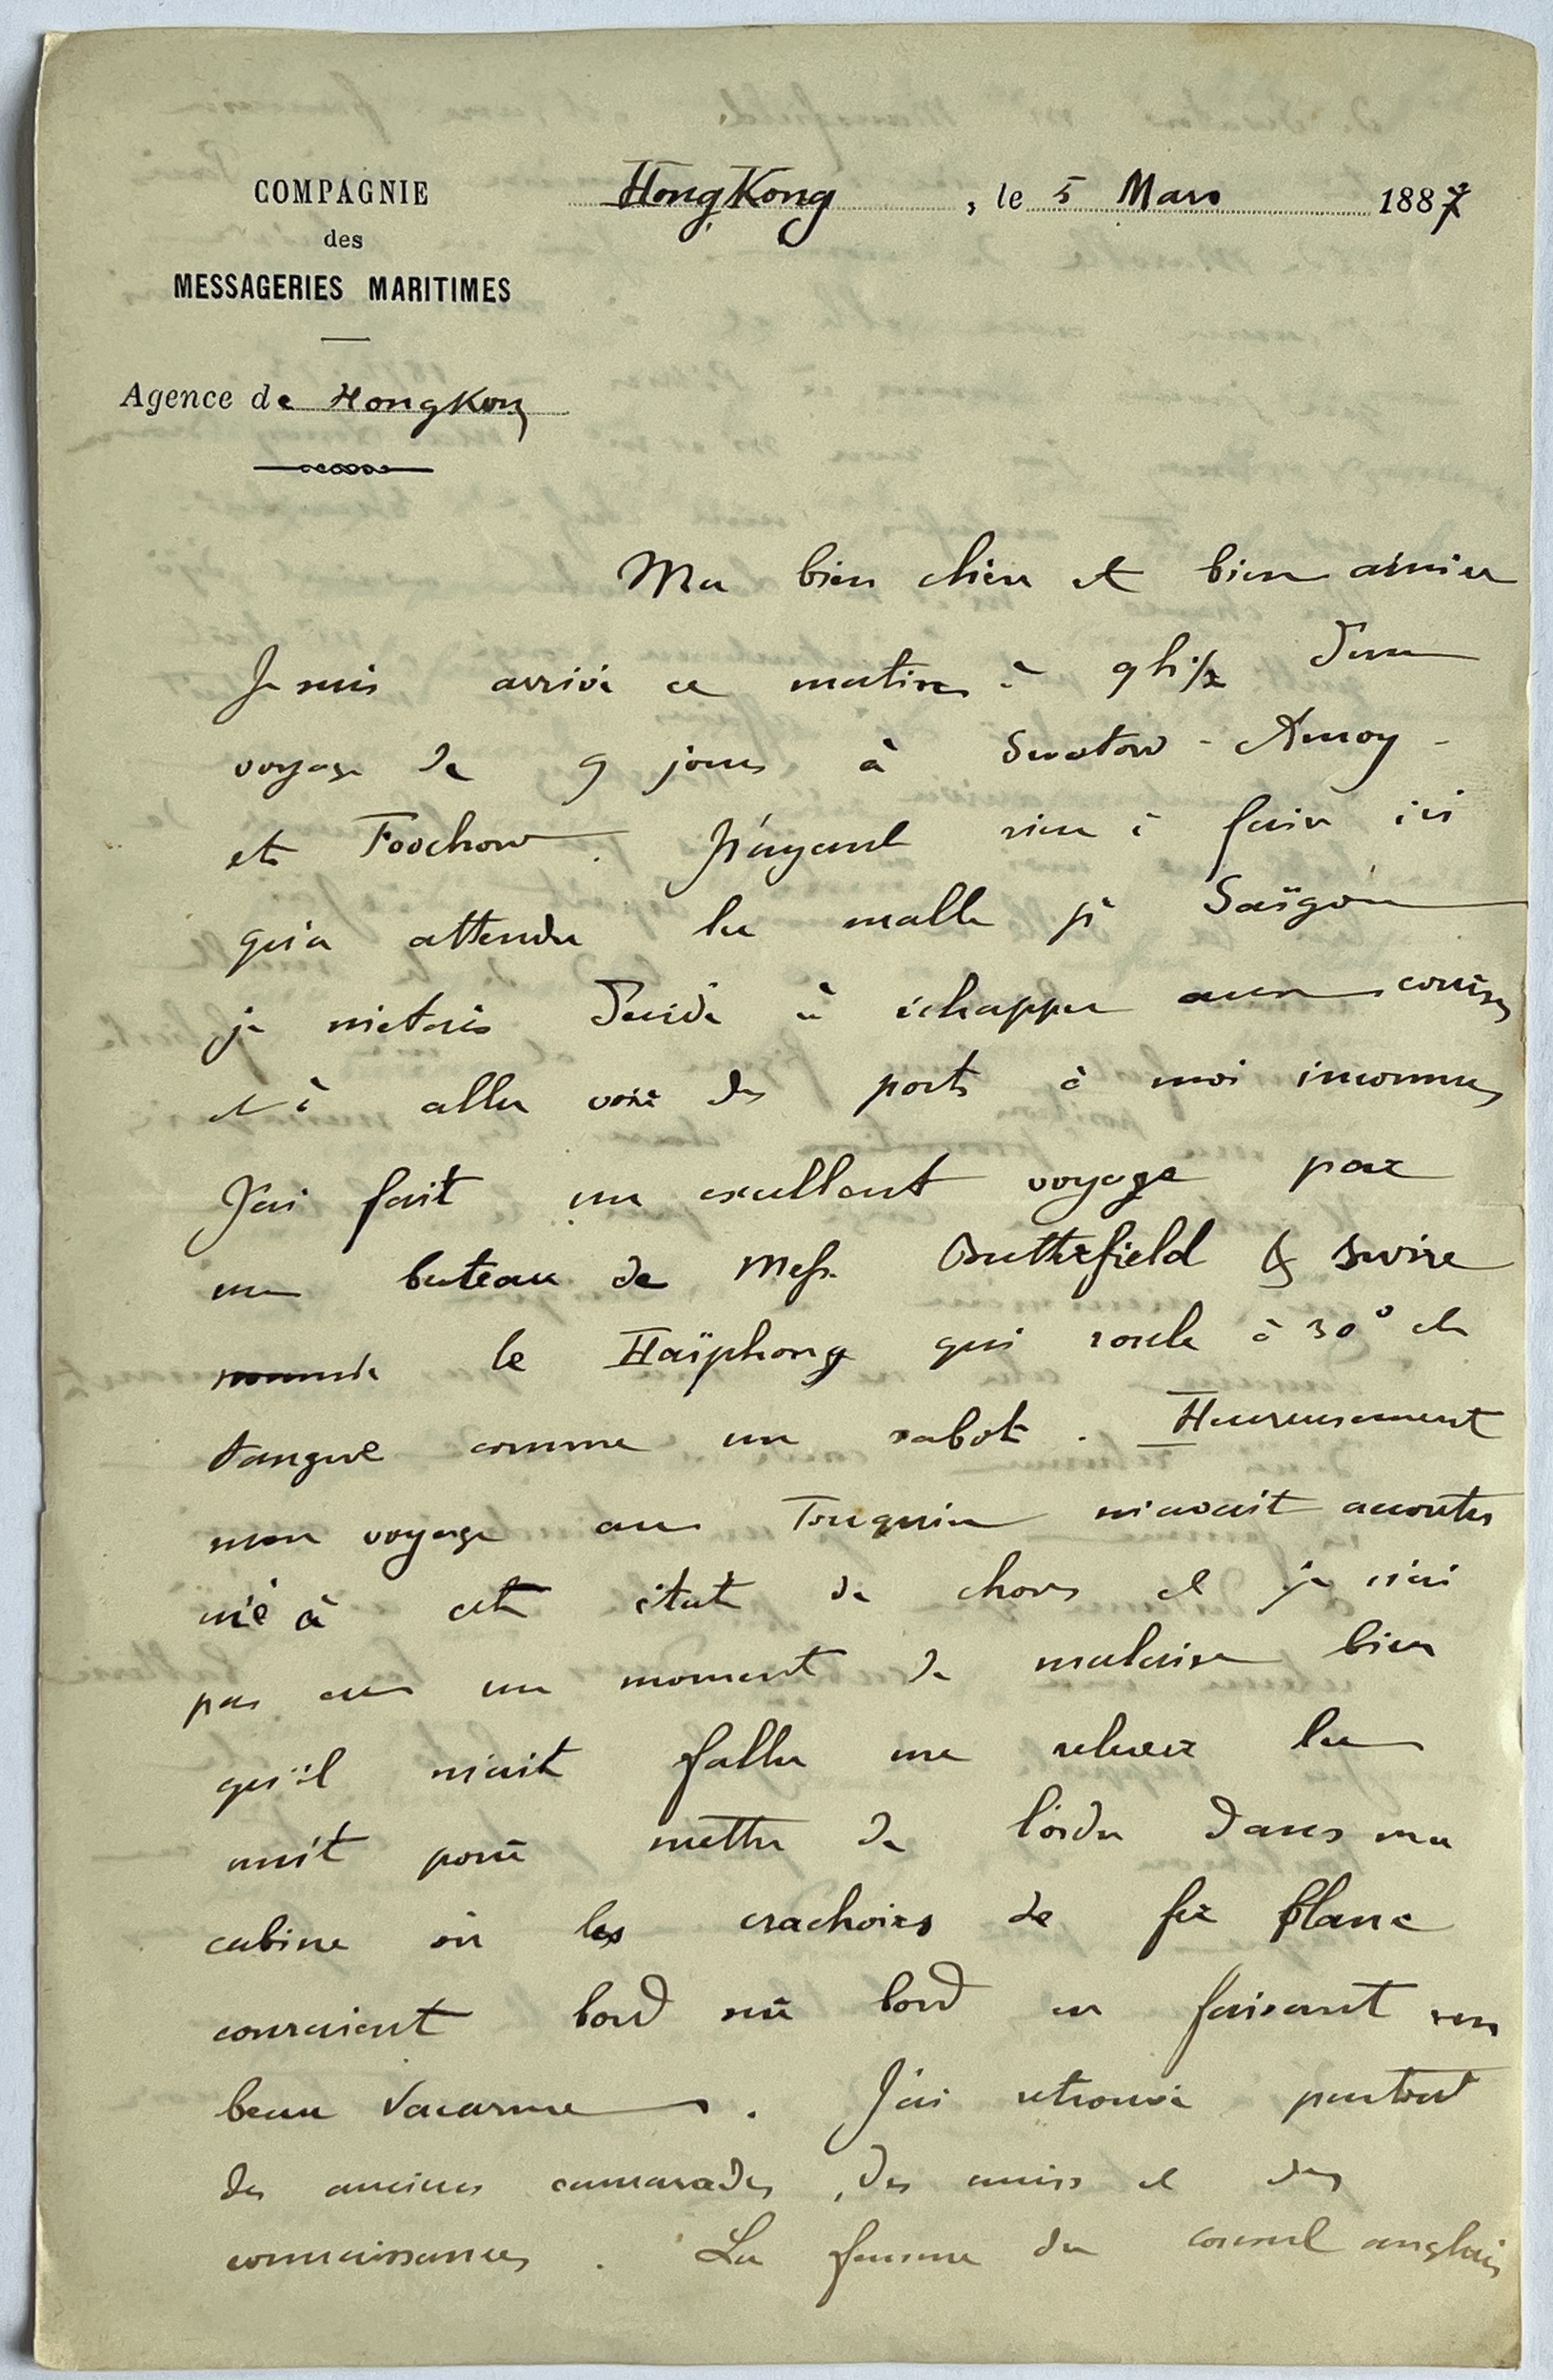 COMPAGNIE
des
MESSAGERIES MARITIMES
Agence de HongKong
HongKong, le 5 Mars 1887
Ma bien chère et bien aimée
Je suis arrivé ce matin à 9h 1/2 d'un
voyage de 9 jours à Swatow - Amoy -
et Foochow. N'ayant rien à faire ici
qu'à attendre la malle pr Saïgon
je m'étais décidé à échapper aux courses
et à aller voir des ports à moi inconnus
J'ai fait un excellent voyage par
un bateau de Mess. Butterfield & Swire
nommé le Haïphong qui roule à 30° et
tangue comme un sabot. Heureusement
mon voyage au Tonquin m'avait accoutu
mé à cet état de choses et je n'ai
pas eu un moment de malaise bien
qu'il m'ait fallu me relever la
nuit pour mettre de l'ordre dans ma
cabine où les crachoirs de fer blanc
couraient bord sur bord en faisant un
beau vacarme. J'ai retrouvé partout
des anciens camarades, des amis et des
connaissances. La femme du consul anglais